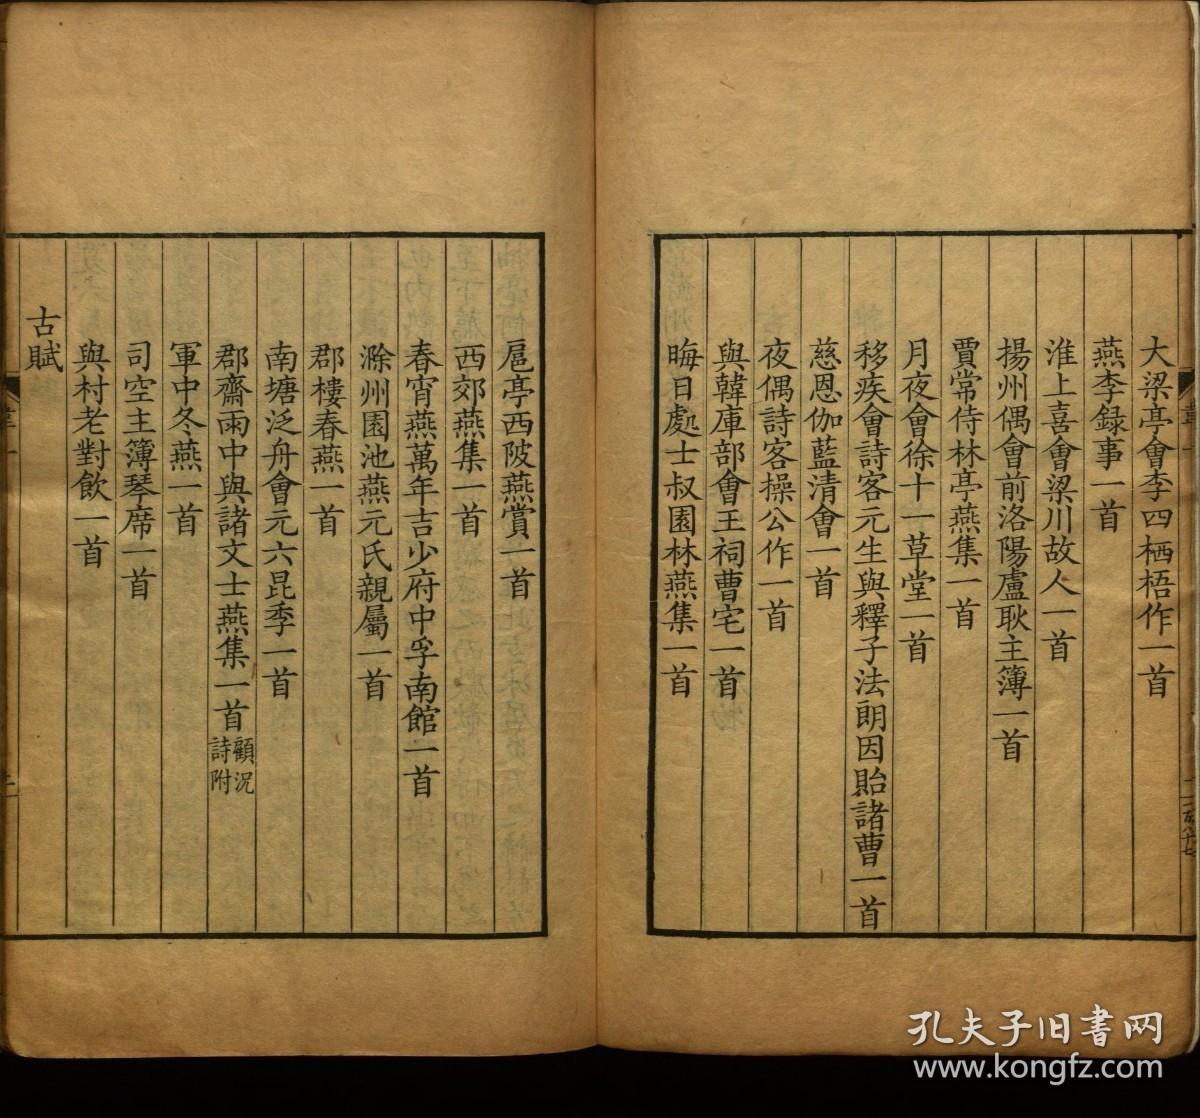 大梁亭會李四栖梧作一首
燕李録事一首
淮上喜會梁川故人一首
揚州偶會前洛陽盧耿主簿一首
賈常侍林亭燕集一首
月夜會徐十一草堂一首
移疾會詩客元生與釋子法朗因貽諸曹一首
慈恩伽藍清會一首
夜偶詩客操公作一首
與韓庫部會王祠曹宅一首
晦日處士叔園林燕集一首
扈亭西陂燕賞一首
西郊燕集一首
春宵燕萬年吉少府中孚南館一首
滁州園池燕元氏親屬一首
郡樓春燕一首
南塘泛舟會元六昆季一首
郡齋雨中與諸文士燕集一首顧況詩附
軍中冬燕一首
司空主簿琴席一首
與村老對飲一首
古賦
孔夫子旧书网
www.kongfz.com